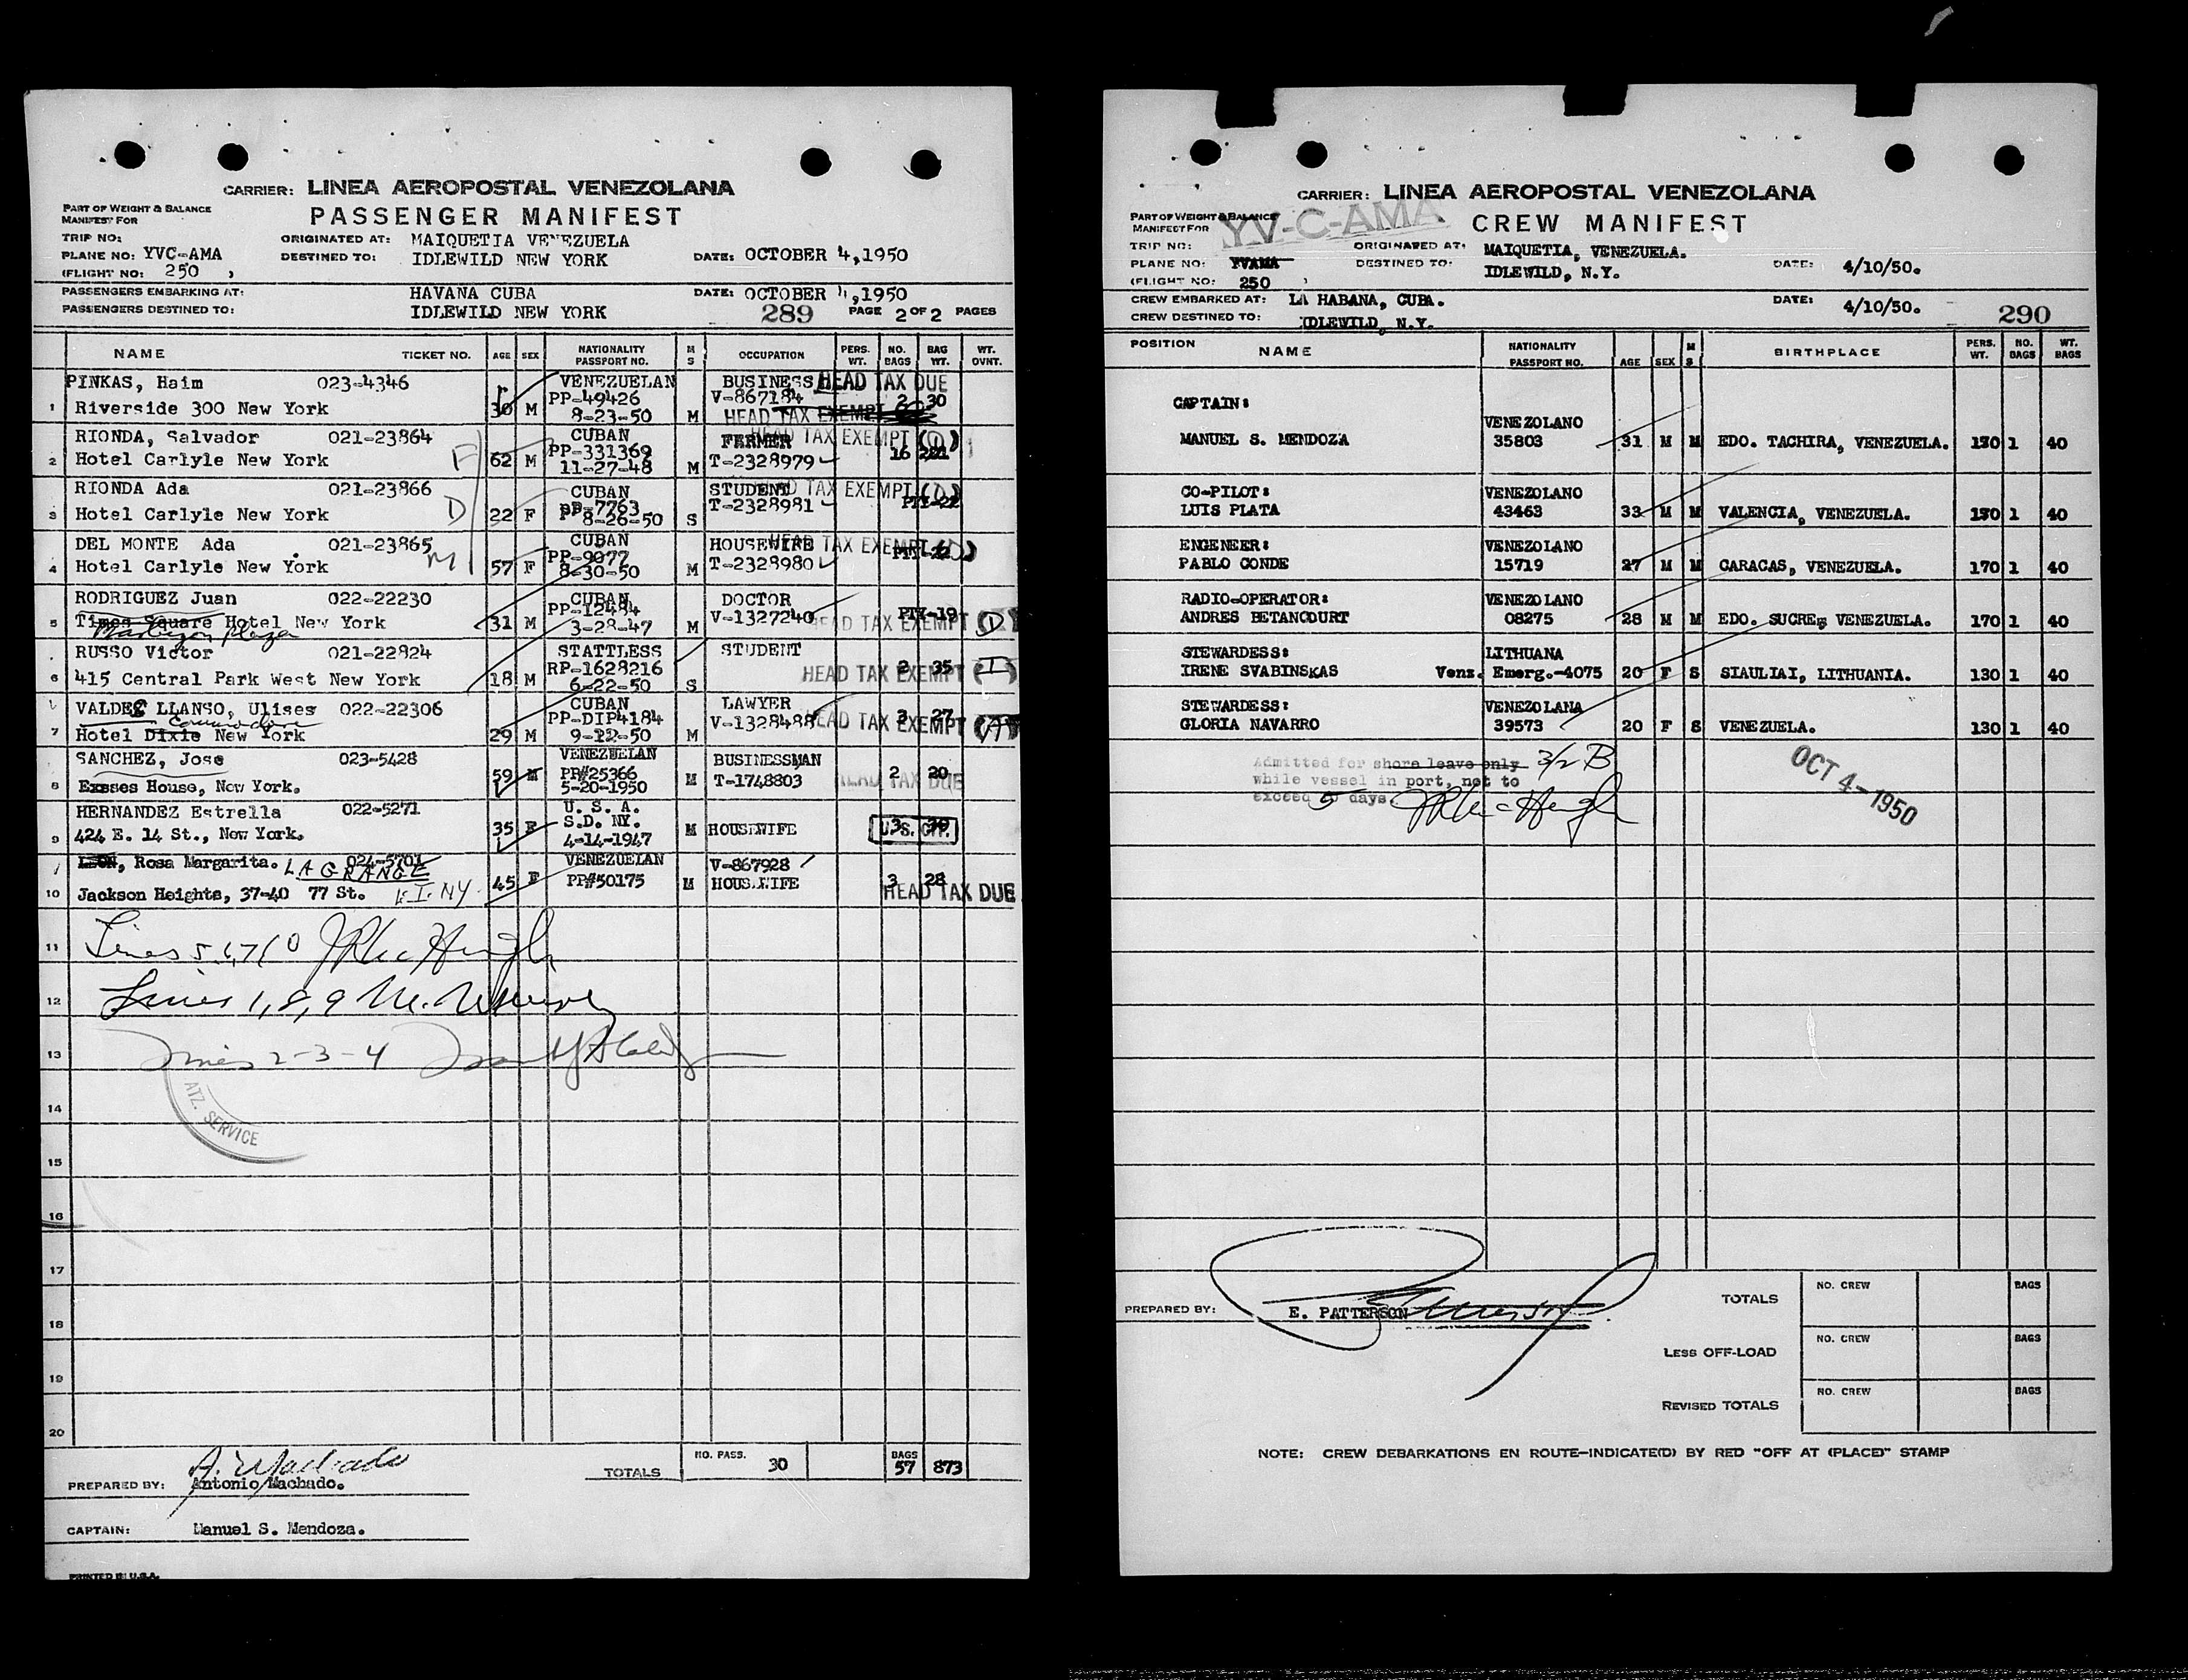 CARRIER: LINEA AEROPOSTAL VENEZOLANA
PART OF WEIGHT & BALANCE
MANIFEST FOR
PASSENGER MANIFEST
TRIP NO:
ORIGINATED AT: MAIQUETIA VENEZUELA
PLANE NO: YVC-AMA
DESTINED TO: IDLEWILD NEW YORK
DATE: OCTOBER 4,1950
(FLIGHT NO: 250 )
PASSENGERS EMBARKING AT: HAVANA CUBA DATE: OCTOBER 4,1950
PASSENGERS DESTINED TO: IDLEWILD NEW YORK 289 PAGE 2 OF 2 PAGES
NAME TICKET NO. AGE SEX NATIONALITY PASSPORT NO. M S OCCUPATION PERS. WT. NO. BAGS BAG WT. WT. OVNT.
PINKAS, Haim 023-4346 VENEZUELAN BUSINESS HEAD TAX DUE
PP-49426 V-867184 2 30
1 Riverside 300 New York 30 M 8-23-50 M HEAD TAX EXEMPT
RIONDA, Salvador 021-23864 CUBAN FERMER HEAD TAX EXEMPT (D)
F PP-331369 16
2 Hotel Carlyle New York 62 M 11-27-48 M T-2328979
RIONDA Ada 021-23866 CUBAN STUDENT HEAD TAX EXEMPT (D)
D PP-7763 T-2328981 PTY-22
3 Hotel Carlyle New York 22 F 8-26-50 S
DEL MONTE Ada 021-23865 CUBAN HOUSEWIFE HEAD TAX EXEMPT (D)
M PP-9077 PTY-22
4 Hotel Carlyle New York 57 F 8-30-50 M T-2328980
RODRIGUEZ Juan 022-22230 CUBAN DOCTOR
PP-12484 V-1327240 PTY-19
5 Times Square Hotel New York 31 M 3-28-47 M HEAD TAX EXEMPT
Plaza
RUSSO Victor 021-22824 STATTLESS STUDENT
RP-1628216 2 35
6 415 Central Park West New York 18 M 6-22-50 S HEAD TAX EXEMPT (I)
VALDES LLANSO, Ulises 022-22306 CUBAN LAWYER
Commodore PP-DIP4184 V-1328488 3 27
7 Hotel Dixie New York 29 M 9-12-50 M HEAD TAX EXEMPT
SANCHEZ, Jose 023-5428 VENEZUELAN BUSINESSMAN
59 M PP#25366 M T-1748803 2 20
8 Exsses House, New York. 5-20-1950 HEAD TAX DUE
HERNANDEZ Estrella 022-5271 U. S. A.
S.D. NY.
9 424 E. 14 St., New York. 35 F 4-14-1947 M HOUSEWIFE U.S. CIT.
LEON, Rosa Margarita. LAGRANGE 024-5701 VENEZUELAN V-867928
45 F PP#50175 M HOUSEWIFE 3 28
10 Jackson Heights, 37-40 77 St. L.I. NY. HEAD TAX DUE
11 Lines 5,6,7,10
12 Lines 1,8,9
13 Lines 2-3-4
14
ATZ. SERVICE
15
16
17
18
19
20
TOTALS NO. PASS. 30 BAGS 57 873
A. Machado
PREPARED BY: Antonio Machado.
CAPTAIN: Manuel S. Mendoza.
PRINTED IN U.S.A.
CARRIER: LINEA AEROPOSTAL VENEZOLANA
PART OF WEIGHT & BALANCE
MANIFEST FOR
YV-C-AMA
CREW MANIFEST
TRIP NO:
ORIGINATED AT: MAIQUETIA, VENEZUELA.
PLANE NO: YVAMA
DESTINED TO: IDLEWILD, N.Y.
DATE: 4/10/50.
(FLIGHT NO: 250 )
CREW EMBARKED AT: LA HABANA, CUBA. DATE: 4/10/50.
CREW DESTINED TO: IDLEWILD, N.Y. 290
POSITION NAME NATIONALITY PASSPORT NO. AGE SEX M S BIRTHPLACE PERS. WT. NO. BAGS WT. BAGS
CAPTAIN: VENEZOLANO
MANUEL S. MENDOZA 35803 31 M M EDO. TACHIRA, VENEZUELA. 130 1 40
CO-PILOT: VENEZOLANO
LUIS PLATA 43463 33 M M VALENCIA, VENEZUELA. 130 1 40
ENGENEER: VENEZOLANO
PABLO CONDE 15719 27 M M CARACAS, VENEZUELA. 170 1 40
RADIO-OPERATOR: VENEZOLANO
ANDRES BETANCOURT 08275 28 M M EDO. SUCRE, VENEZUELA. 170 1 40
STEWARDESS: LITHUANA
IRENE SVABINSKAS Venz. Emerg.-4075 20 F S SIAULIAI, LITHUANIA. 130 1 40
STEWARDESS: VENEZOLANA
GLORIA NAVARRO 39573 20 F S VENEZUELA. 130 1 40
Admitted for shore leave only 3/2 B
while vessel in port, not to
exceed 5 days.
OCT 4-1950
PREPARED BY: E. PATTERSON
TOTALS NO. CREW BAGS
LESS OFF-LOAD NO. CREW BAGS
REVISED TOTALS NO. CREW BAGS
NOTE: CREW DEBARKATIONS EN ROUTE-INDICATE(D) BY RED "OFF AT (PLACE)" STAMP